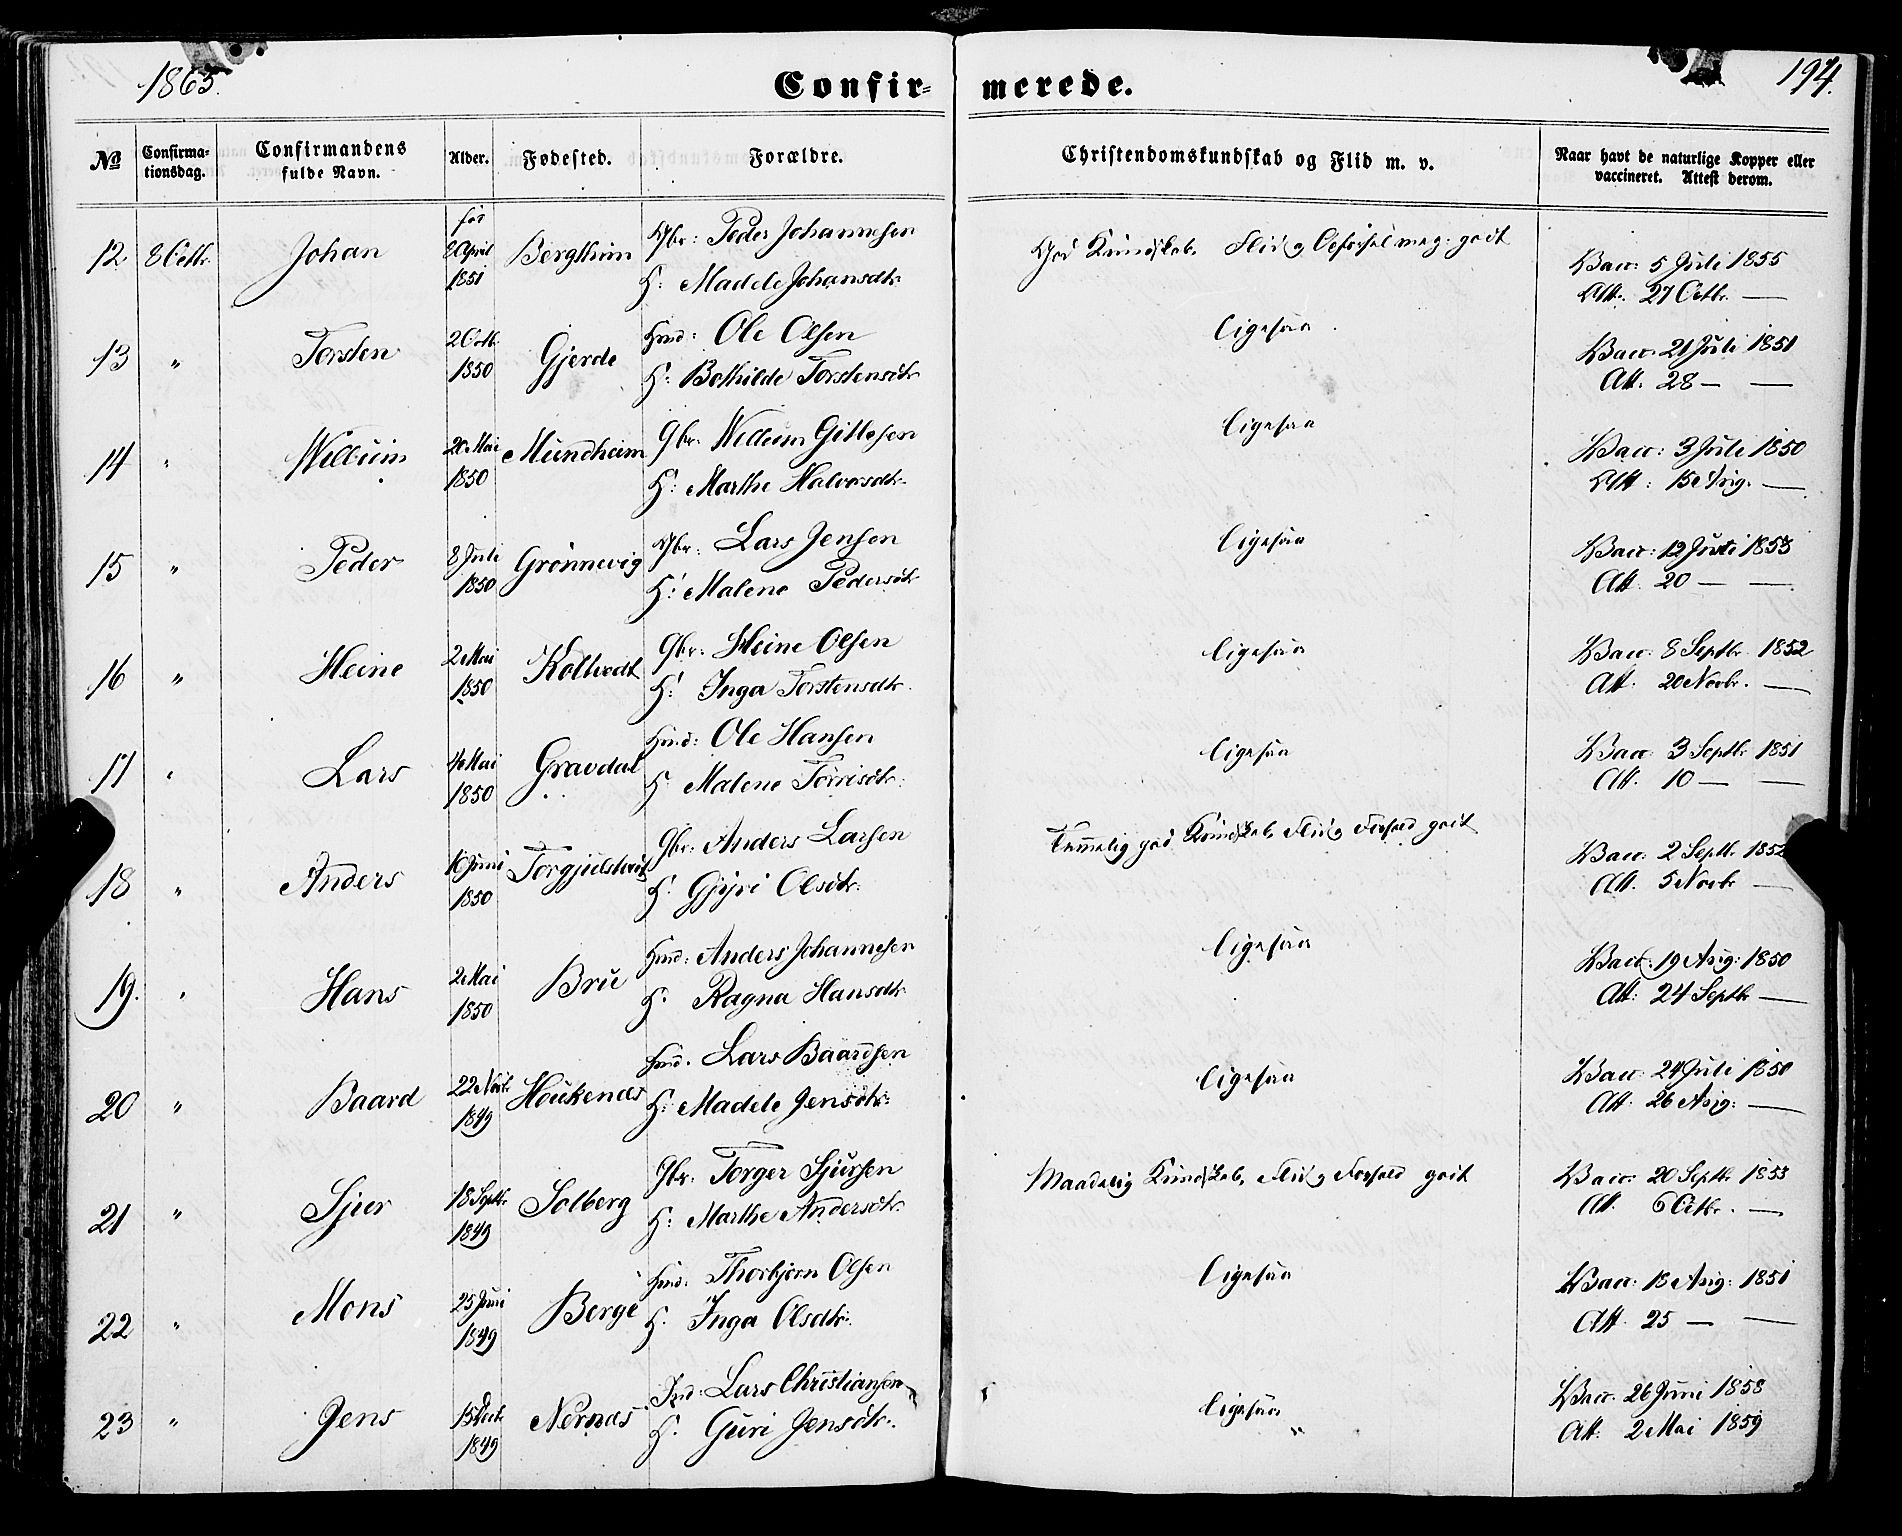 1865.
Confir-
merede.
194.
No
Confirma-
tionsdag.
Confirmandens
fulde Navn.
Alder.
Fødested.
Forældre.
Christendomskundskab og Flid m. v.
Naar havt de naturlige Kopper eller
vaccineret. Attest derom.
12 8 Octbr. Johan 8 April 1851 Bergthun Gbr: Peder Johannesen
H: Madele Johansdtr.
God Kundskab. Flid og Opførsel meg: godt
Vacc: 5 Juli 1855
Att. 27 Octbr. —
13 " Torsten 2 Octb. 1850 Gjerde Hmd: Ole Olsen
H: Bothilde Torstensdtr
Ligesaa
Vacc. 21 Juli 1851
Att. 28 — —
14 " Willum 20 Mai 1850 Mundheim Gbr: Willum Gittlesen
H: Marthe Halvorsdtr.
Ligesaa
Vacc: 3 Juli 1850
Att: 15 Aug. —
15 " Peder 8 Juli 1850 Grønnevig Gbr: Lars Jensen
H: Malene Pedersdtr
Ligesaa
Vacc: 12 Juli 1853
Att. 20 — —
16 " Heine 2 Mai 1850 Koltvedt Gbr: Heine Olsen
H: Inga Torstensdtr.
Ligesaa
Vacc. 8 Septbr 1852
Att. 20 Novbr. —
17 " Lars 4 Mai 1850 Gravdal Hmd: Ole Hansen
H Malene Torrisdtr.
Ligesaa
Vacc. 3 Septbr 1851
Att. 10 — —
18 " Anders 16 Juni 1850 Gbr: Anders Larsen
H. Gjyri Olsdtr.
Temmelig god Kundskab, Flid og Forhold godt
Vacc: 2 Septb. 1852
Att. 5 Novbr —
19. " Hans 2 Mai 1850 Brue Hmd: Anders Johannesen
H. Ragna Hansdtr
Ligesaa
Vacc: 19 Aug: 1850
Att: 24 Septbr —
20 " Baard 22 Novb. 1849 Houkenæs Hmd. Lars Baardsen
H: Madele Jensdtr.
Ligesaa
Vacc. 24 Juli 1850
Att. 26 Aug: —
21 " Sjur 18 Septbr. 1849 Solberg Gbr. Torger Sjursen
H: Marthe Andersdtr.
Maadelig Kundskab, Flid og Forhold godt
Vacc: 20 Septbr 1853
Att. 6 Octbr. —
22 " Mons 25 Juni 1849 Berge Hmd: Thorbjørn Olsen
H. Inga Olsdtr.
Ligesaa
Vacc: 13 Aug: 1851
Att. 25 — —
23 " Jens 1849 Nernæs Ind: Lars Christiansen
H. Guri Jensdtr.
Ligesaa
Vacc. 26 Juni 1858
Att. 2 Mai 1859